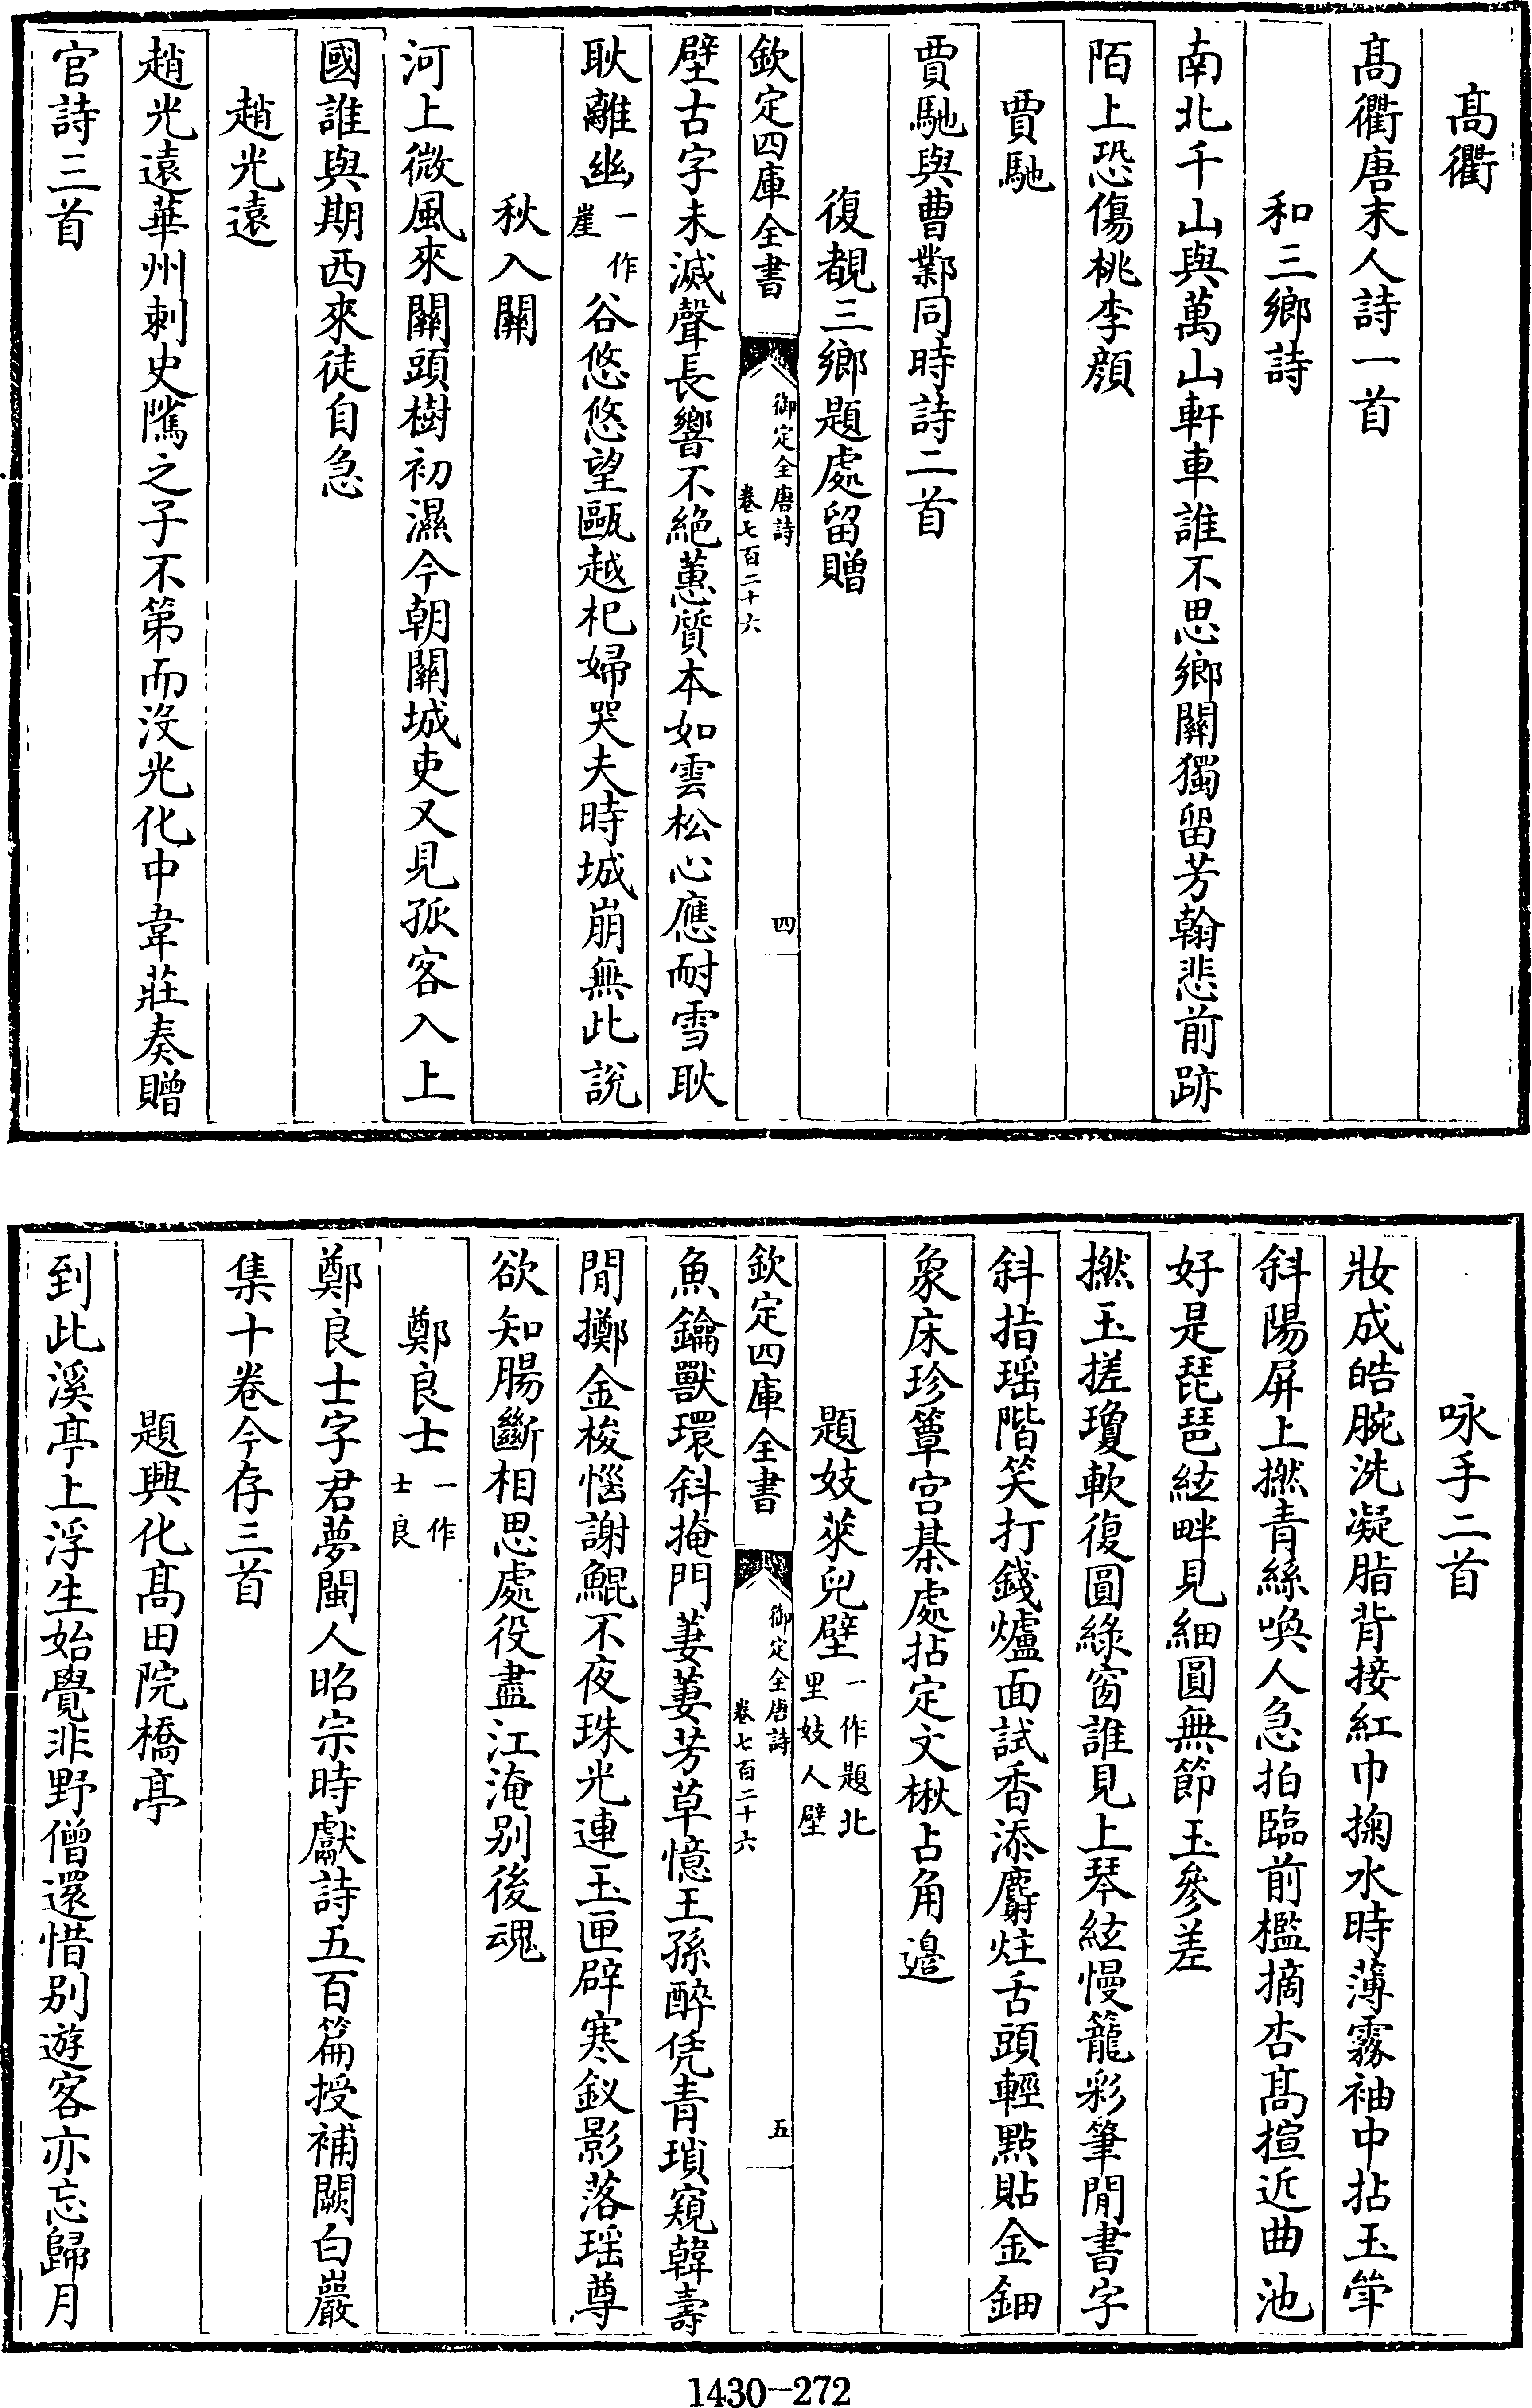 高衢
高衢唐末人詩一首
和三鄉詩
南北千山與萬山軒車誰不思鄉關獨留芳翰悲前跡
陌上恐傷桃李顔
賈馳
賈馳與曹鄴同時詩二首
復覩三鄉題處留贈
欽定四庫全書
御定全唐詩
卷七百二十六
四
壁古字未滅聲長響不絶蕙質本如雲松心應耐雪耿
耿離幽一作崖谷悠悠望甌越杞婦哭夫時城崩無此説
秋入關
河上微風來關頭樹初濕今朝關城吏又見孤客入上
國誰與期西來徒自急
趙光遠
趙光遠華州刺史隲之子不第而没光化中韋莊奏贈
官詩三首
咏手二首
妝成皓腕洗凝脂背接紅巾掬水時薄霧袖中拈玉斝
斜陽屏上撚青絲喚人急拍臨前檻摘杏高揎近曲池
好是琵琶絃畔見細圓無節玉參差
撚玉搓瓊軟復圓綠窗誰見上琴絃慢籠彩筆閒書字
斜指瑶階笑打錢爐面試香添麝炷舌頭輕點貼金鈿
象床珍簟宫棊處拈定文楸占角邉
題妓萊兒壁一作題北里妓人壁
欽定四庫全書
御定全唐詩
卷七百二十六
五
魚鑰獸環斜掩門萋萋芳草憶王孫醉凭青瑣窺韓壽
閒擲金梭惱謝鯤不夜珠光連玉匣辟寒釵影落瑶尊
欲知腸斷相思處役盡江淹别後魂
鄭良士一作士良
鄭良士字君夢閩人昭宗時獻詩五百篇授補闕白巖
集十卷今存三首
題興化高田院橋亭
到此溪亭上浮生始覺非野僧還惜别遊客亦忘歸月
1430-272